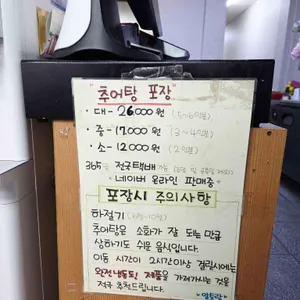 "추어탕 포장"
· 대 - 26000원 (5~6인분)
· 중 - 17000원 (3~4인분)
· 소 - 12000원 (2인분)
365일 전국택배가능
· 네이버 온라인 판매중 ·
포장시 주의사항
하절기
추어탕은 소화가 잘 되는 만큼
상하기도 쉬운 음식입니다.
이동 시간이 2시간이상 걸릴시에는
완전냉동된 제품을 가져가시는 것을
적극 추천드립니다.